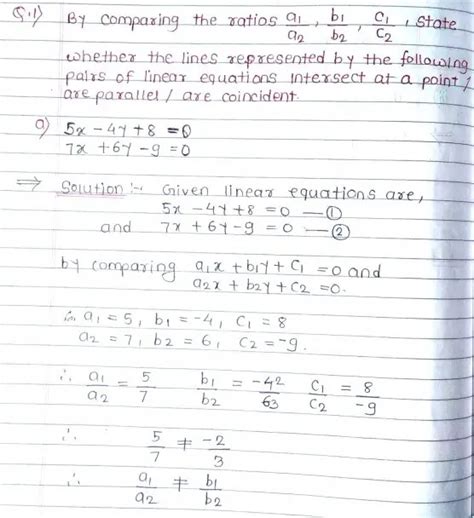 Q.1) By comparing the ratios a1/a2, b1/b2, c1/c2, state
whether the lines represented by the following
pairs of linear equations intersect at a point /
are parallel / are coincident.
a) 5x - 4y + 8 = 0
7x + 6y - 9 = 0
⇒ Solution :- Given linear equations are,
5x - 4y + 8 = 0 — ①
and 7x + 6y - 9 = 0 — ②
by comparing a1x + b1y + c1 = 0 and
a2x + b2y + c2 = 0.
∴ a1 = 5, b1 = -4, c1 = 8
a2 = 7, b2 = 6, c2 = -9.
∴ a1/a2 = 5/7 b1/b2 = -4 2/6 3 c1/c2 = 8/-9
∴ 5/7 ≠ -2/3
∴ a1/a2 ≠ b1/b2